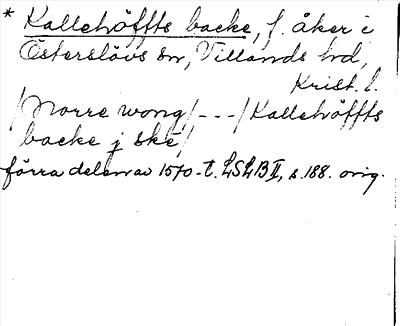 * Kallehöffts backe, f. åker i
Österslövs sn, Villands hd,
Krist. l.
/Norre wong/---/Kallehöffts
backe j ske/
förra delen av 1570-t. LSLB II, s. 188. orig.